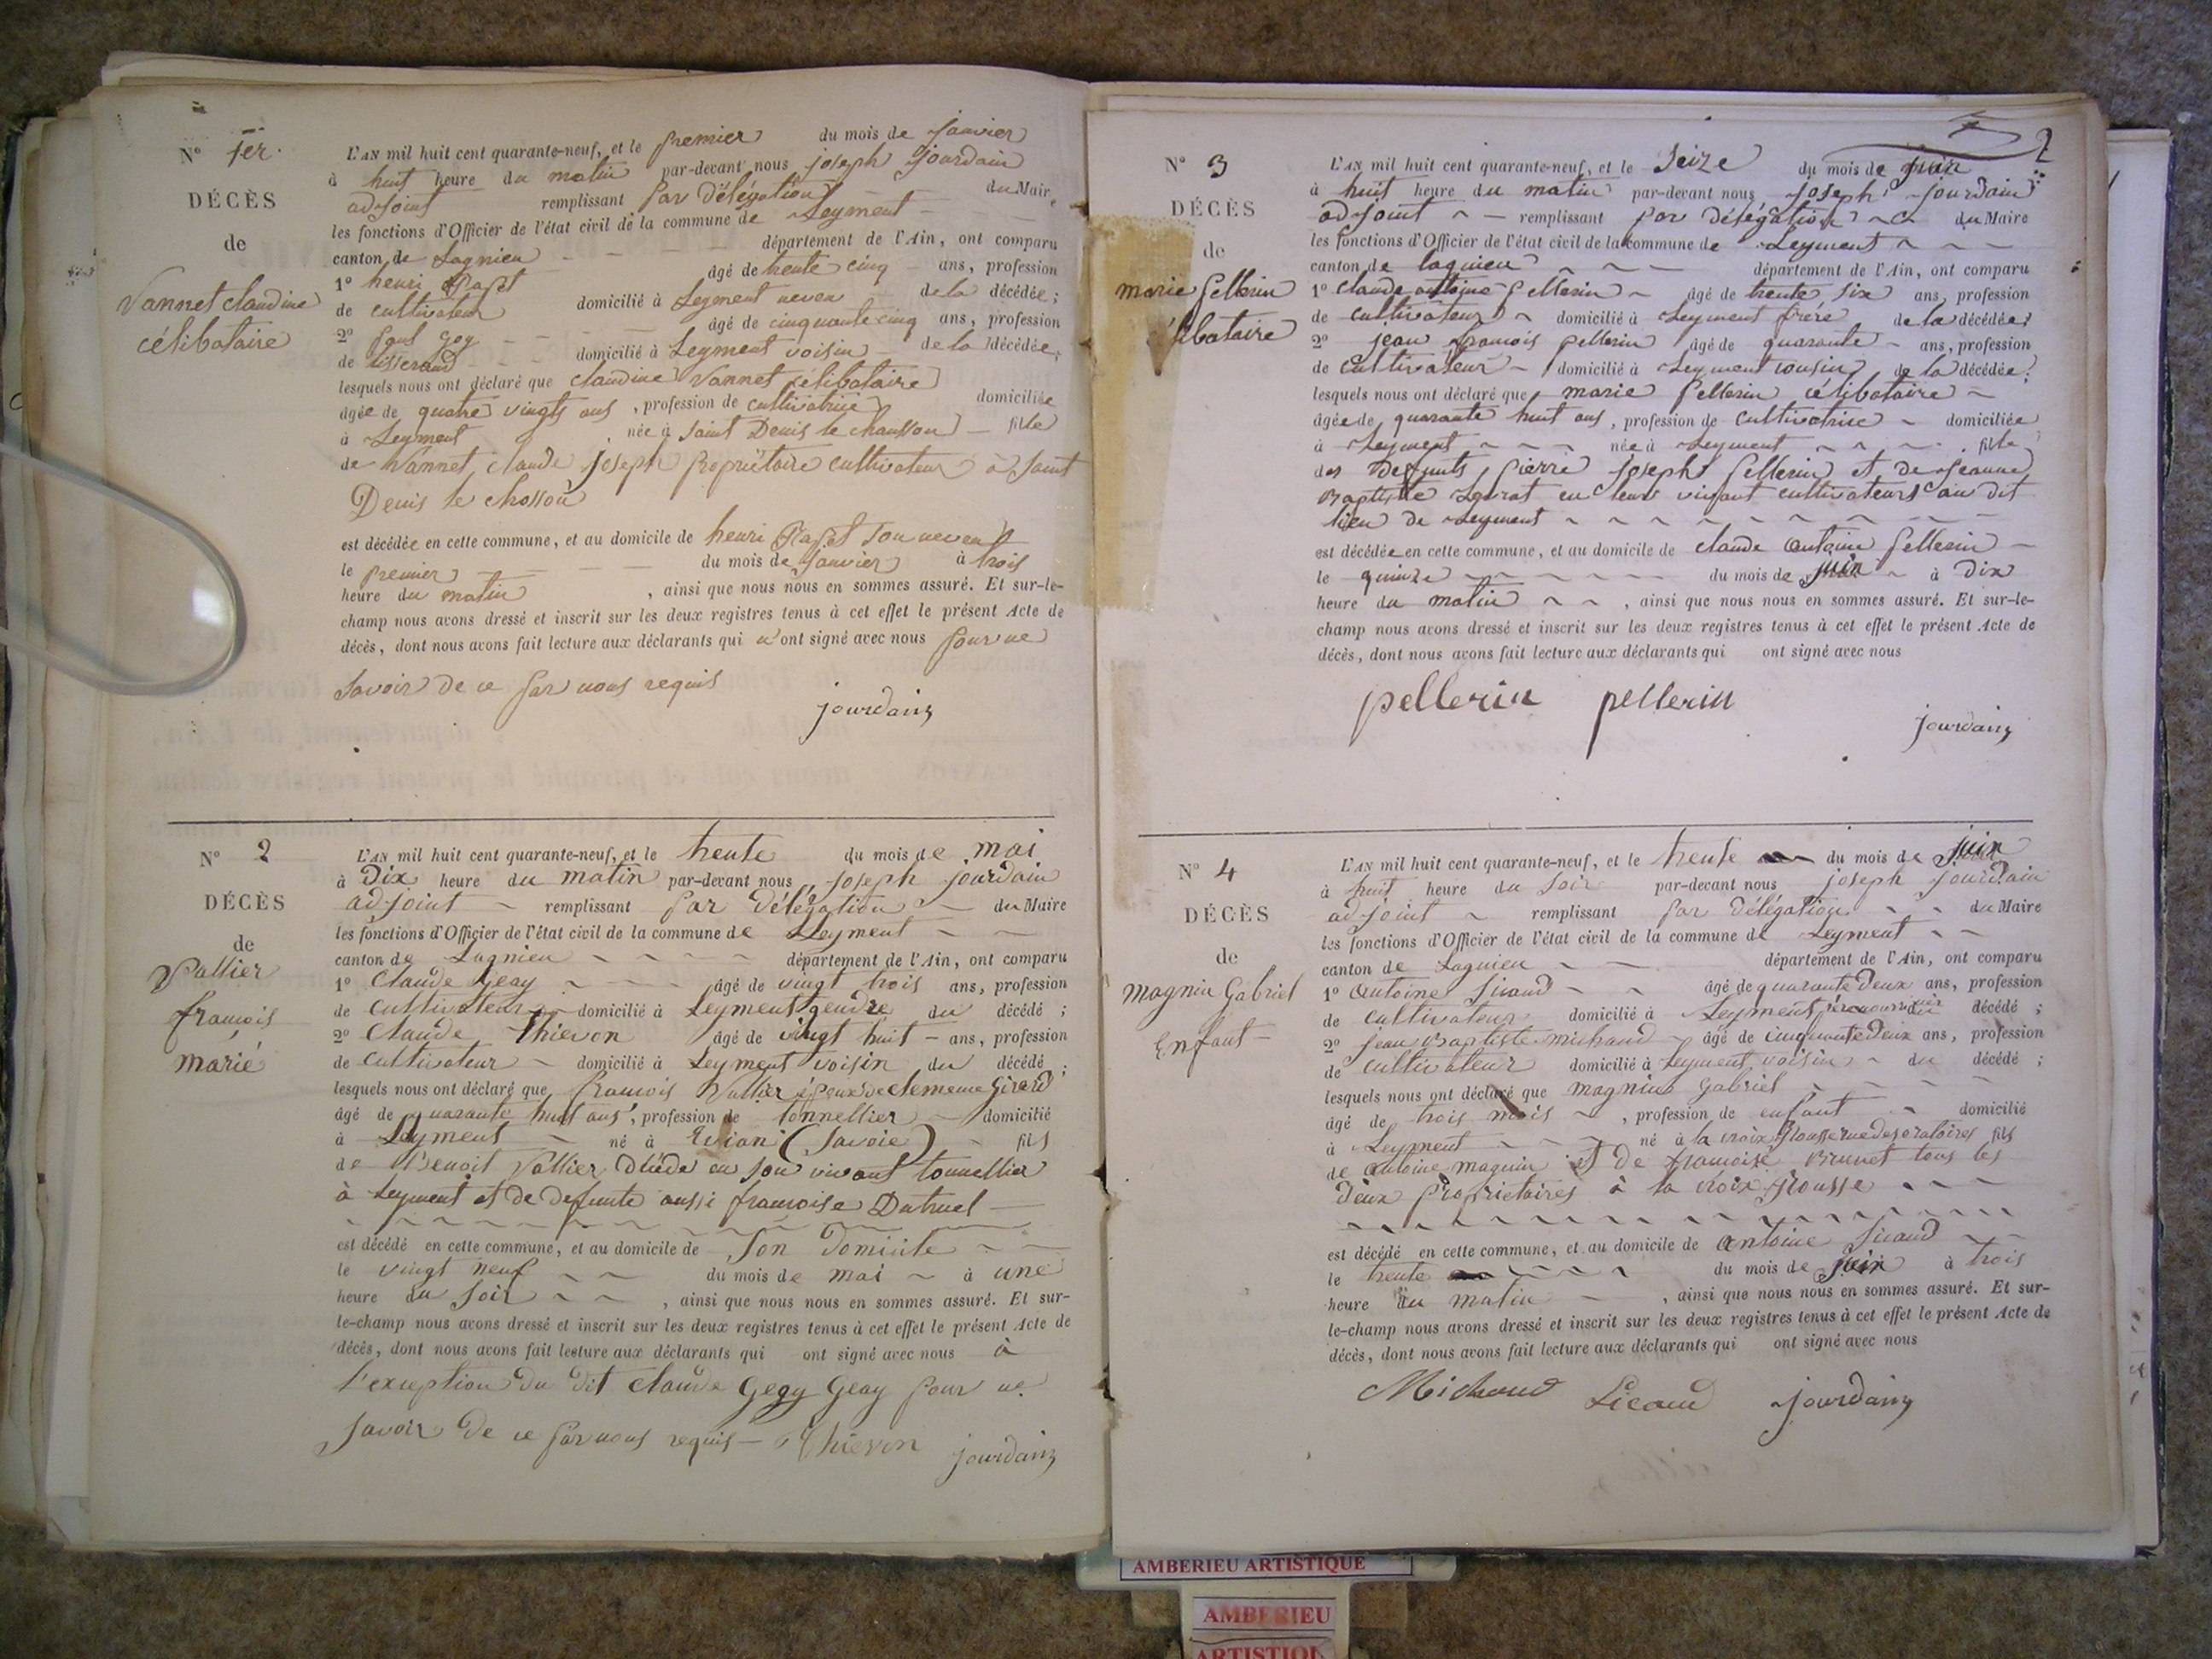 N° 1er.
DÉCÈS
de
Vannet claudine
célibataire
L'AN mil huit cent quarante-neuf, et le premier du mois de janvier
à huit heure du matin par-devant nous joseph jourdain
adjoint remplissant par délégation du Maire
les fonctions d'Officier de l'état civil de la commune de Leyment
canton de Lagnieu département de l'Ain, ont comparu
1° henri âgé de trente cinq ans, profession
de cultivateur domicilié à Leyment neveu de la décédée ;
2° paul âgé de cinquante cinq ans, profession
de tisserand domicilié à Leyment voisin de la décédée,
lesquels nous ont déclaré que claudine Vannet célibataire
âgée de quatre vingts ans, profession de cultivatrice domiciliée
à Leyment née à saint Denis le chausson fille
de Vannet, claude joseph propriétaire cultivateur à saint
Denis le chosson
est décédée en cette commune, et au domicile de henri son neveu
le premier du mois de janvier à trois
heure du matin, ainsi que nous nous en sommes assuré. Et sur-le-
champ nous avons dressé et inscrit sur les deux registres tenus à cet effet le présent Acte de
décès, dont nous avons fait lecture aux déclarants qui n'ont signé avec nous pour ne
savoir de ce par nous requis
jourdain
N° 2
DÉCÈS
de
Vallier
françois
marié
L'AN mil huit cent quarante-neuf, et le trente du mois de mai
à Dix heure du matin par-devant nous joseph jourdain
adjoint remplissant par délégation du Maire
les fonctions d'Officier de l'état civil de la commune de Leyment
canton de Lagnieu département de l'Ain, ont comparu
1° Claude Geay âgé de vingt trois ans, profession
de cultivateur domicilié à Leyment gendre du décédé ;
2° Claude Thievon âgé de vingt huit ans, profession
de cultivateur domicilié à Leyment voisin du décédé ;
lesquels nous ont déclaré que françois Vallier époux de clemence Girard
âgé de quarante huit ans, profession de tonnellier domicilié
à Leyment né à Evian (Savoie) fils
de Benoit Vallier en son vivant tonnellier
à Leyment et de defunte aussi françoise Dutruel
est décédé en cette commune, et au domicile de Son Domicile
le vingt neuf du mois de mai à une
heure du soir, ainsi que nous nous en sommes assuré. Et sur-
le-champ nous avons dressé et inscrit sur les deux registres tenus à cet effet le présent Acte de
décès, dont nous avons fait lecture aux déclarants qui ont signé avec nous à
l'exception du dit claude Gegy Geay pour ne
savoir de ce par nous requis Thievon jourdain
2
N° 3
DÉCÈS
de
marie pellerin
élibataire
L'AN mil huit cent quarante-neuf, et le seize du mois de juin
à huit heure du matin par-devant nous joseph jourdain
adjoint remplissant par délégation du Maire
les fonctions d'Officier de l'état civil de la commune de Leyment
canton de lagnieu département de l'Ain, ont comparu
1° claude antoine pellerin âgé de trente six ans, profession
de cultivateur domicilié à Leyment frère de la décédée ;
2° jean françois pellerin âgé de quarante ans, profession
de cultivateur domicilié à Leyment cousin de la décédée ;
lesquels nous ont déclaré que marie pellerin célibataire
âgée de quarante huit ans, profession de cultivatrice domiciliée
à Leyment née à Leyment fille
des defunts pierre joseph pellerin et de jeanne
Baptiste en leur vivant cultivateurs au dit
lieu de Leyment
est décédée en cette commune, et au domicile de claude antoine pellerin
le quinze du mois de juin à dix
heure du matin, ainsi que nous nous en sommes assuré. Et sur-le-
champ nous avons dressé et inscrit sur les deux registres tenus à cet effet le présent Acte de
décès, dont nous avons fait lecture aux déclarants qui ont signé avec nous
pellerin pellerin
jourdain
N° 4
DÉCÈS
de
magnin Gabriel
Enfant
L'AN mil huit cent quarante-neuf, et le trente du mois de juin
à huit heure du soir par-devant nous joseph jourdain
adjoint remplissant par délégation du Maire
les fonctions d'Officier de l'état civil de la commune de Leyment
canton de Lagnieu département de l'Ain, ont comparu
1° Antoine Sicaud âgé de quarante Deux ans, profession
de cultivateur domicilié à Leyment père nourricier décédé ;
2° jean Baptiste michaud âgé de cinquante Deux ans, profession
de cultivateur domicilié à Leyment voisin du décédé ;
lesquels nous ont déclaré que magnin Gabriel
âgé de trois mois, profession de enfant domicilié
à Leyment né à la croix Rousse rue des oratoires fils
de Antoine magnin et de françoise Brunet tous les
deux propriétaires à la croix Rousse
est décédé en cette commune, et au domicile de antoine Sicaud
le trente du mois de juin à trois
heure du matin, ainsi que nous nous en sommes assuré. Et sur-
le-champ nous avons dressé et inscrit sur les deux registres tenus à cet effet le présent Acte de
décès, dont nous avons fait lecture aux déclarants qui ont signé avec nous
Michaud Sicaud jourdain
AMBERIEU ARTISTIQUE
AMBERIEU